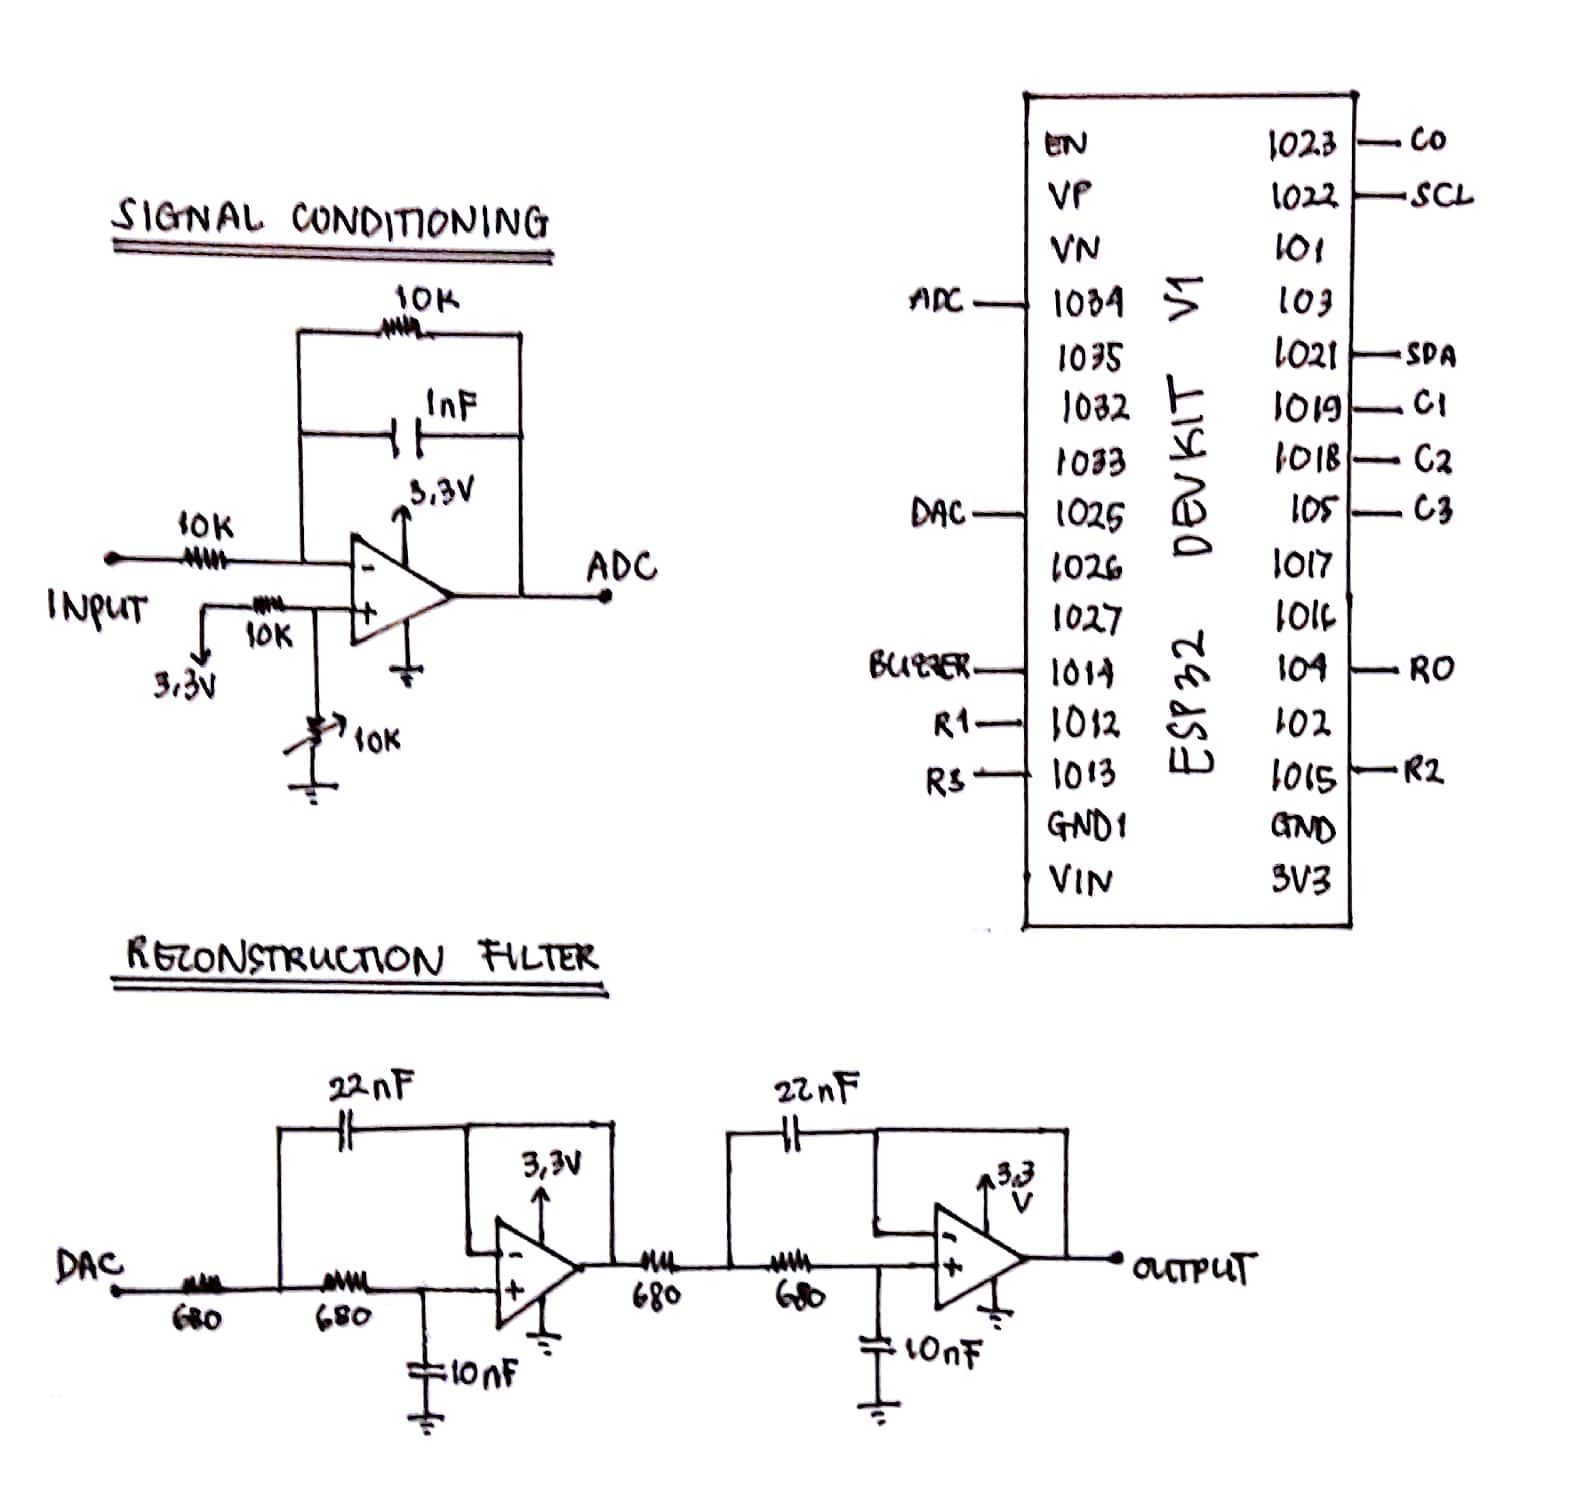 SIGNAL CONDITIONING
10K
1nF
3,3V
10K
INPUT
-
+
10K
3,3V
10K
ADC
EN
VP
VN
ADC
IO34
IO35
IO32
IO33
DAC
IO25
IO26
IO27
BUZZER
IO14
R1
IO12
R3
IO13
GND1
VIN
ESP32 DEVKIT V1
IO23
C0
IO22
SCL
IO1
IO3
IO21
SDA
IO19
C1
IO18
C2
IO5
C3
IO17
IO16
IO4
R0
IO2
IO15
R2
GND
3V3
RECONSTRUCTION FILTER
22nF
22nF
3,3V
3,3
V
DAC
680
680
-
+
10nF
680
680
-
+
10nF
OUTPUT